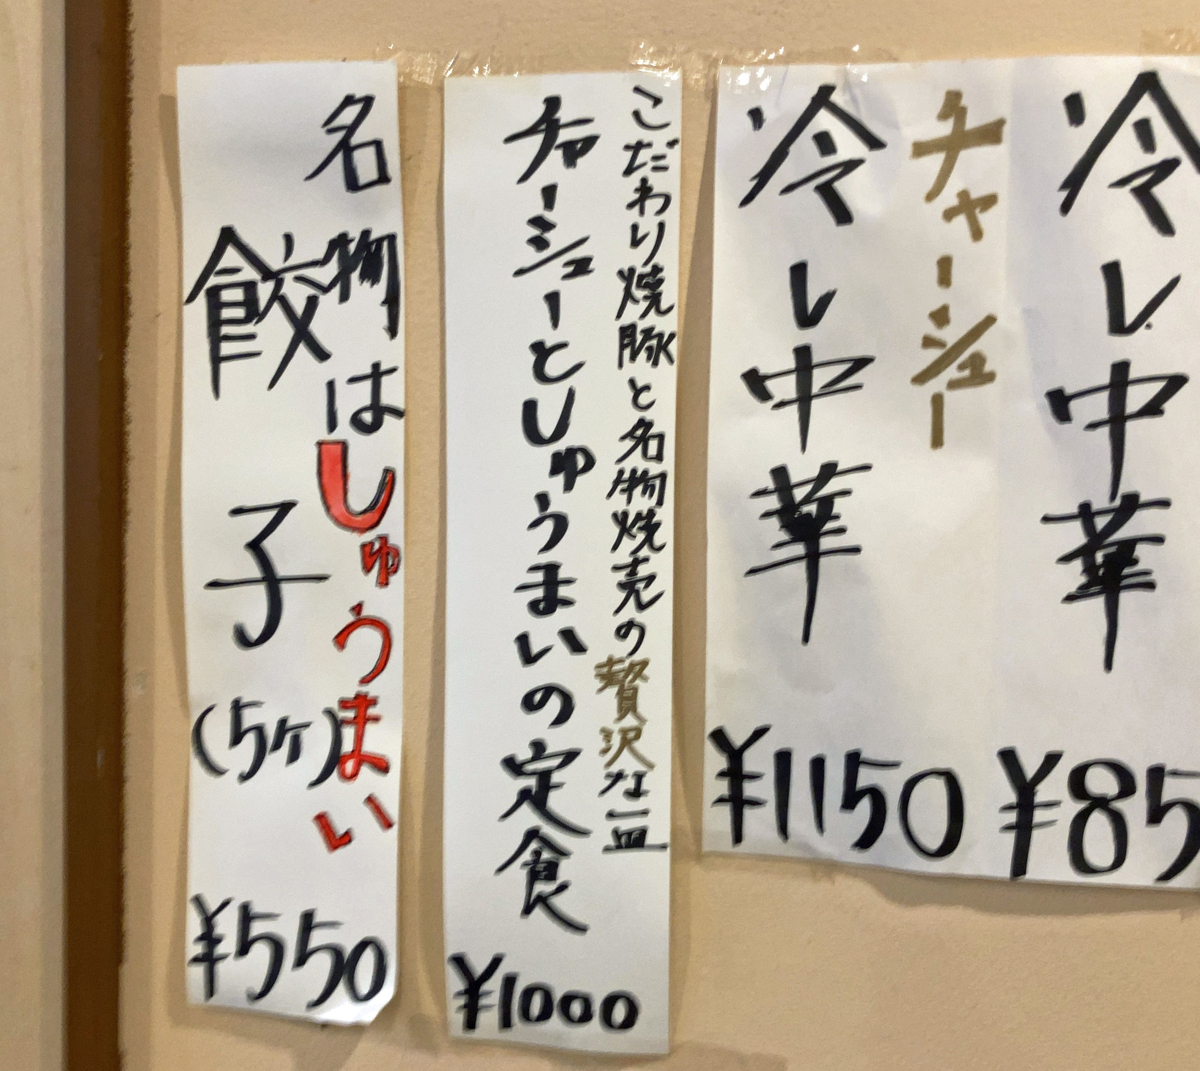 冷し中華
¥85
チャーシュー
冷し中華
¥1150
こだわり焼豚と名物焼売の贅沢な一皿
チャーシューとしゅうまいの定食
¥1000
名物はしゅうまい
餃子(5ケ)
¥550